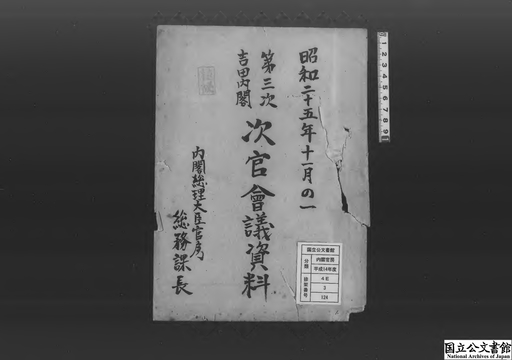 昭和二十五年十一月の一
第三次
吉田内閣
次官會議資料
内閣総理大臣官房
総務課長
国立公文書館
分類
内閣官房
平成14年度
4E
排架番号
3
124
1 2 3 4 5 6 7 8 9
国立公文書館
National Archives of Japan